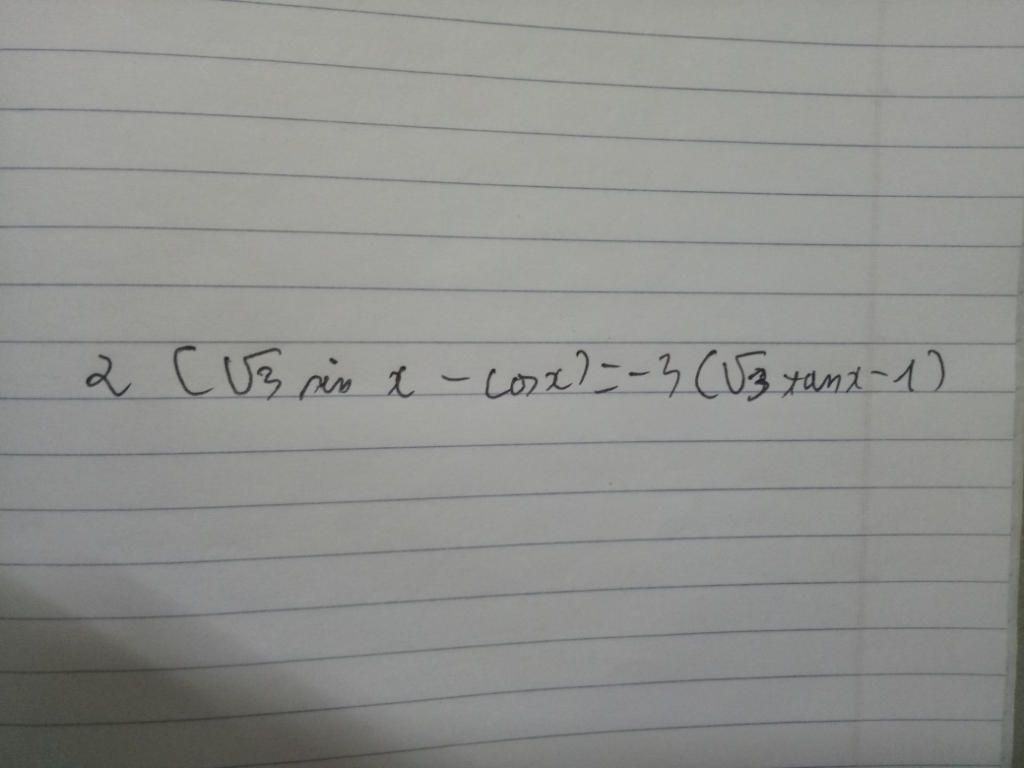 2 (√3 sin x - cos x) = -3 (√3 tan x - 1)